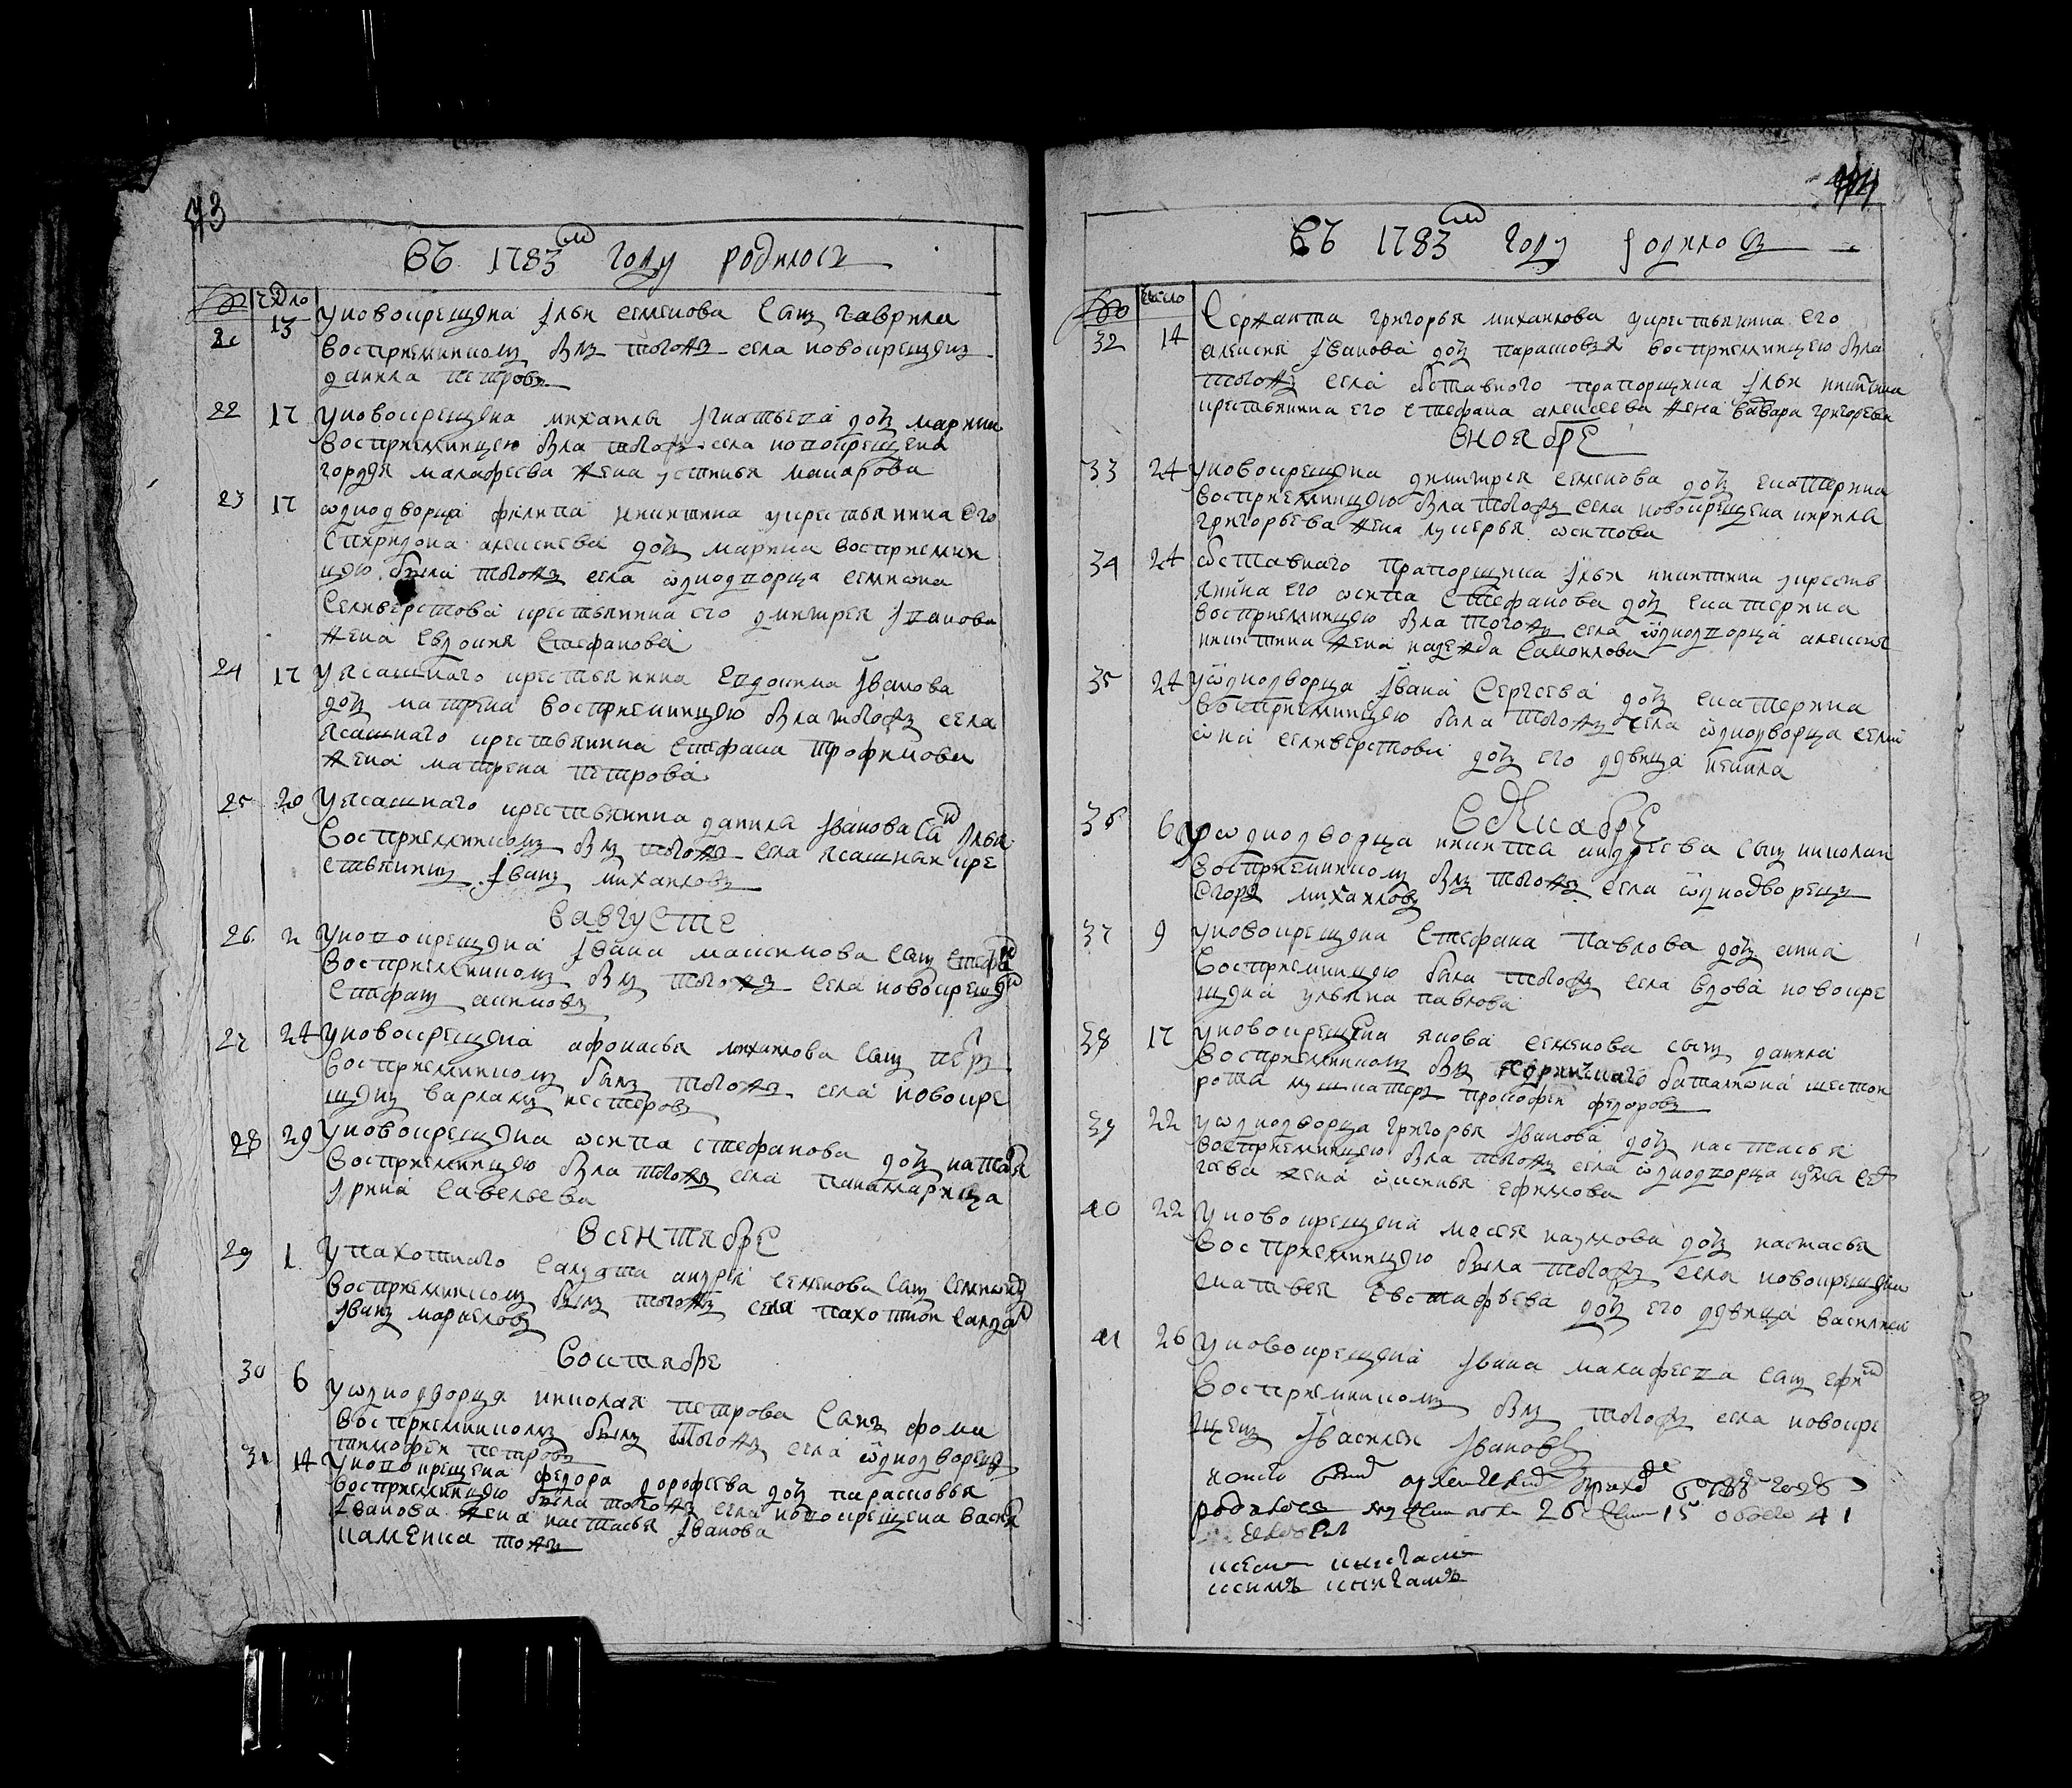 43
Въ 1783м году родилось
число
13 у новокрещена Ильи Семенова сынъ Гаврила
восприемникомъ былъ тогожъ села новокрещенъ
Данила Петровъ
22 17 у новокрещена Михаилы Игнатьева дочь Марина
восприемницею была тогожъ села новокрещена
Гордея Малафеева жена Устинья Макарова
23 17 однодворца Филипа Никитина у крестьянина его
Спиридона Алексеева дочь Марина восприемни
цею была тогожъ села однодворца Семиона
Селиверстова крестьянина его Дмитрея Иванова
жена Евдокия Стефанова
24 17 у ясашнаго крестьянина Евдокима Иванова
дочь Матрена восприемницею была тогожъ села
ясашнаго крестьянина Стефана Трофимова
жена Матрена Петрова
25 20 у ясашнаго крестьянина Данила Иванова сынъ Илья
восприемникомъ былъ тогожъ села ясашный кре
стьянинъ Иванъ Михаиловъ
в августе
26 2 у новокрещена Ивана Максимова сынъ Стефанъ
восприемникомъ былъ тогожъ села новокрещенъ
Стефанъ
27 24 у новокрещена Афонасья Михаилова сынъ Петръ
восприемникомъ былъ тогожъ села новокре
щенъ Варламъ Нестеровъ
28 29 у новокрещена Осипа Стефанова дочь Наталья
восприемницею была тогожъ села понамарица
Ирина Савельева
в сентябре
29 1 у пахотнаго салдата Андрея Семенова сынъ Семионъ
восприемникомъ былъ тогожъ села пахотной салдатъ
Иванъ Маркеловъ
в октябре
30 6 у однодворца Николая Петрова сынъ Фома
восприемникомъ былъ тогожъ села однодворецъ
Тимофей Петровъ
31 14 у новокрещена Федора Дорофеева дочь Парасковья
восприемницею была тогожъ села новокрещена Василья
Иванова жена Настасья Иванова
44
Въ 1783м году родилось
число
32 14 Сержанта Григорья Михаилова у крестьянина его
Алексея Иванова дочь Парасковья восприемницею была
тогожъ села отставного прапорщика Ильи Никитина
крестьянина его Стефана Алексеева жена Варвара Григорьева
в ноябре
33 24 у новокрещена Димитрея Семенова дочь Екатерина
восприемницею была тогожъ села новокрещена Кирила
Григорьева жена Лукерья Осипова
34 24 отставнаго прапорщика Ильи Никитина у кресть
янина его Осипа Стефанова дочь Екатерина
восприемницею была тогожъ села однодворца Алексея
Никитина жена Надежда Самоилова
35 24 у однодворца Ивана Сергеева дочь Екатерина
восприемницею была тогожъ села однодворца Семи
она Селиверстова дочь его девица Ненила
в декабре
36 6 у однодворца Никиты Андреева сынъ Николай
восприемникомъ былъ тогожъ села однодворецъ
Егоръ Михаиловъ
37 9 у новокрещена Стефана Павлова дочь Анна
восприемницею была тогожъ села вдова новокре
щена Ульяна Павлова
38 17 у новокрещена Якова Семенова сынъ Данила
восприемникомъ былъ баталиона шестой
роты мушкатеръ Прокофей Федоровъ
39 22 у однодворца Григорья Иванова дочь Настасья
восприемницею была тогожъ села однодворца Кузма Сер
геева жена Оксинья Ефимова
40 22 у новокрещена Мосея Наумова дочь Настасья
восприемницею была тогожъ села новокрещена
Матвея Евстафьева дочь его девица Василиса
41 26 у новокрещена Ивана Малафеева сынъ
восприемникомъ былъ тогожъ села новокре
щенъ Василей Ивановъ
родилось 26 15 обоего 41